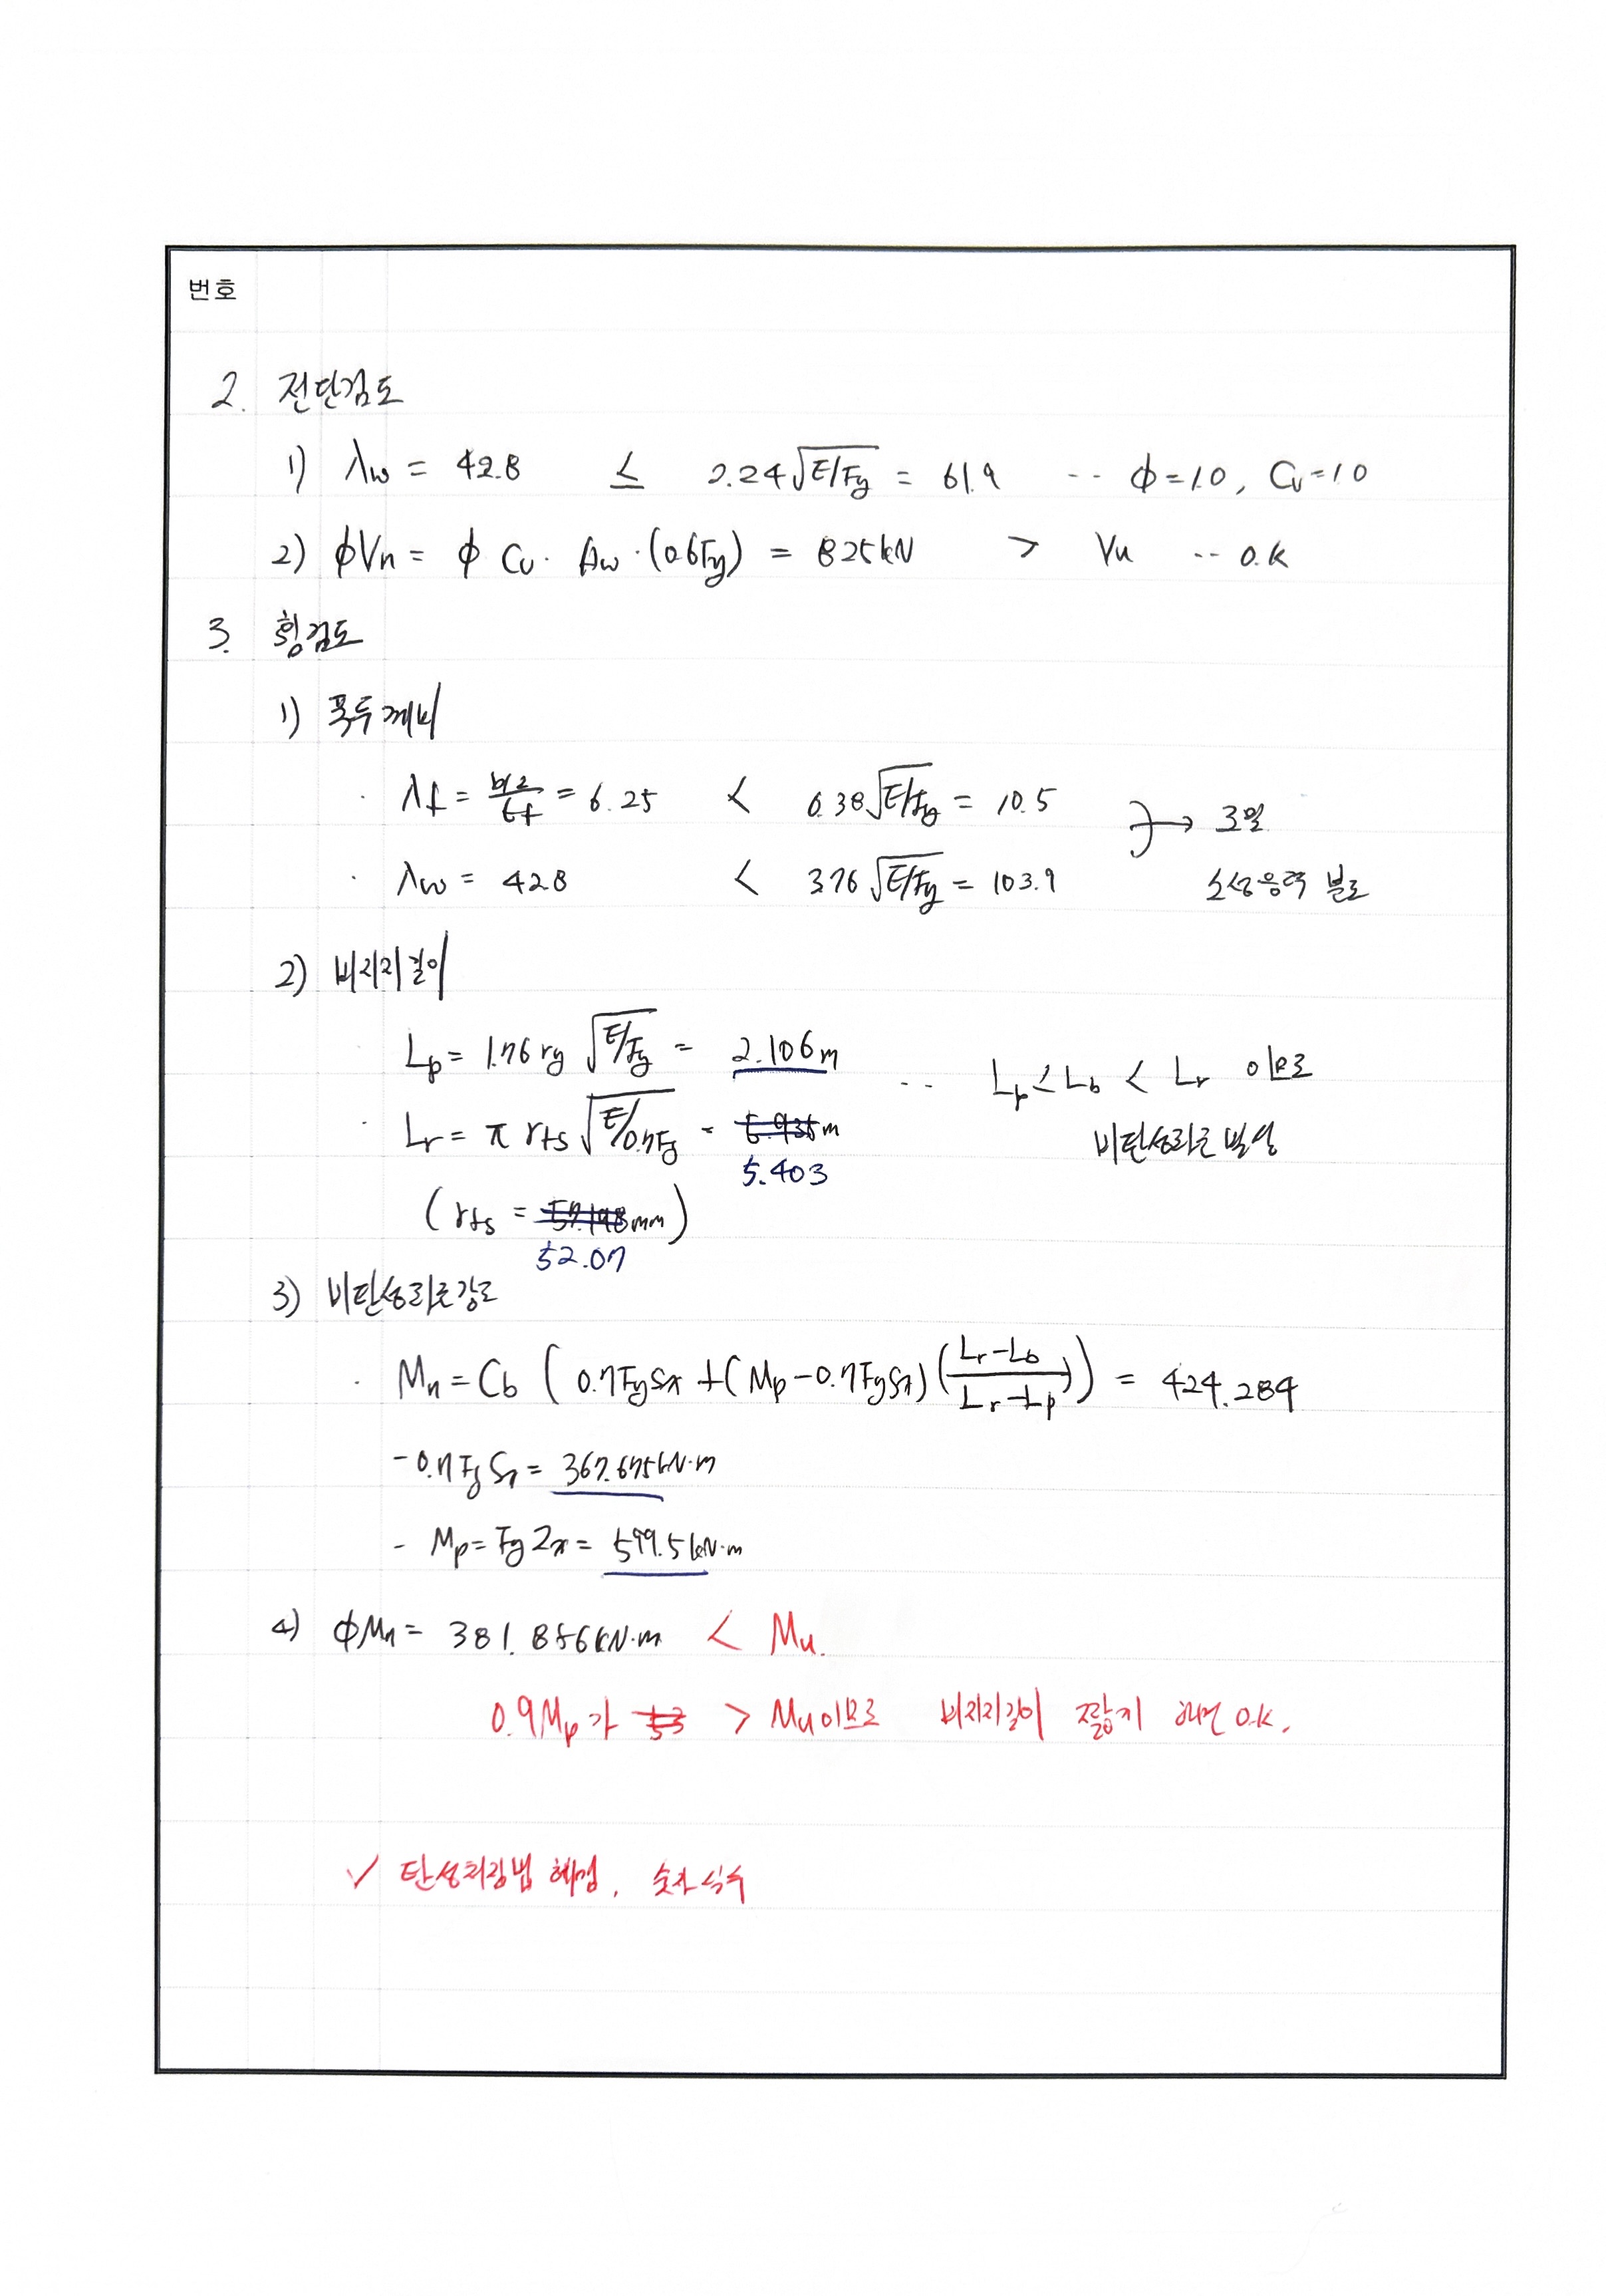 번호
2. 전단검토
1) λw = 42.8 ≤ 2.24√E/Fy = 61.9 ‥ ϕ=1.0, Cv=1.0
2) ϕVn = ϕ Cv · Aw · (0.6Fy) = 825kN > Vu ‥ O.K
3. 휨검토
1) 폭두께비
· λf = b/2/tf = 6.25 < 0.38√E/Fy = 10.5 → 조밀
· λw = 42.8 < 3.76√E/Fy = 103.9 소성응력 분포
2) 비지지길이
· Lp = 1.76 ry √E/Fy = 2.106m ‥ Lp ≤ Lb < Lr 이므로
· Lr = π rts √E/0.7Fy = 5.935m 비탄성좌굴 발생
5.403
(rts = 57.198mm)
52.07
3) 비탄성좌굴강도
· Mn = Cb (0.7FySx + (Mp - 0.7FySx)(Lr-Lb/Lr-Lp)) = 424.284
- 0.7FySx = 367.675kN·m
- Mp = FyZx = 599.5kN·m
4) ϕMn = 381.856kN·m < Mu.
0.9Mp가 > Mu이므로 비지지길이 짧게 하면 O.K.
✓ 탄성처짐법 , 숫자 실수